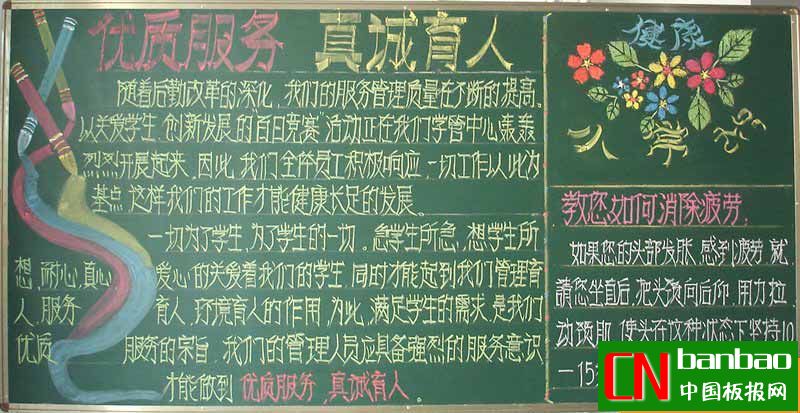 优质服务 真诚育人
随着后勤改革的深化，我们的服务管理质量在不断的提高。
以关爱学生，创新发展的“百日竞赛”活动正在我们学管中心轰轰
烈烈开展起来，因此，我们全体员工积极响应，一切工作以此为
基点，这样我们的工作才能健康长足的发展。
一切为了学生，为了学生的一切。急学生所急，想学生所
想，耐心，真心，爱心的关爱着我们的学生，同时才能起到我们管理育
人，服务育人，环境育人的作用，为此，满足学生的需求，是我们
优质服务的宗旨，我们的管理人员应具备强烈的服务意识
才能做到 优质服务，真诚育人。
健康
教您如何消除疲劳：
如果您的头部发胀，感到疲劳，就
请您坐直后，把头颈向后仰，用力拉
动颈部，使头在这种状态下坚持10
一15
CN banbao
中国板报网